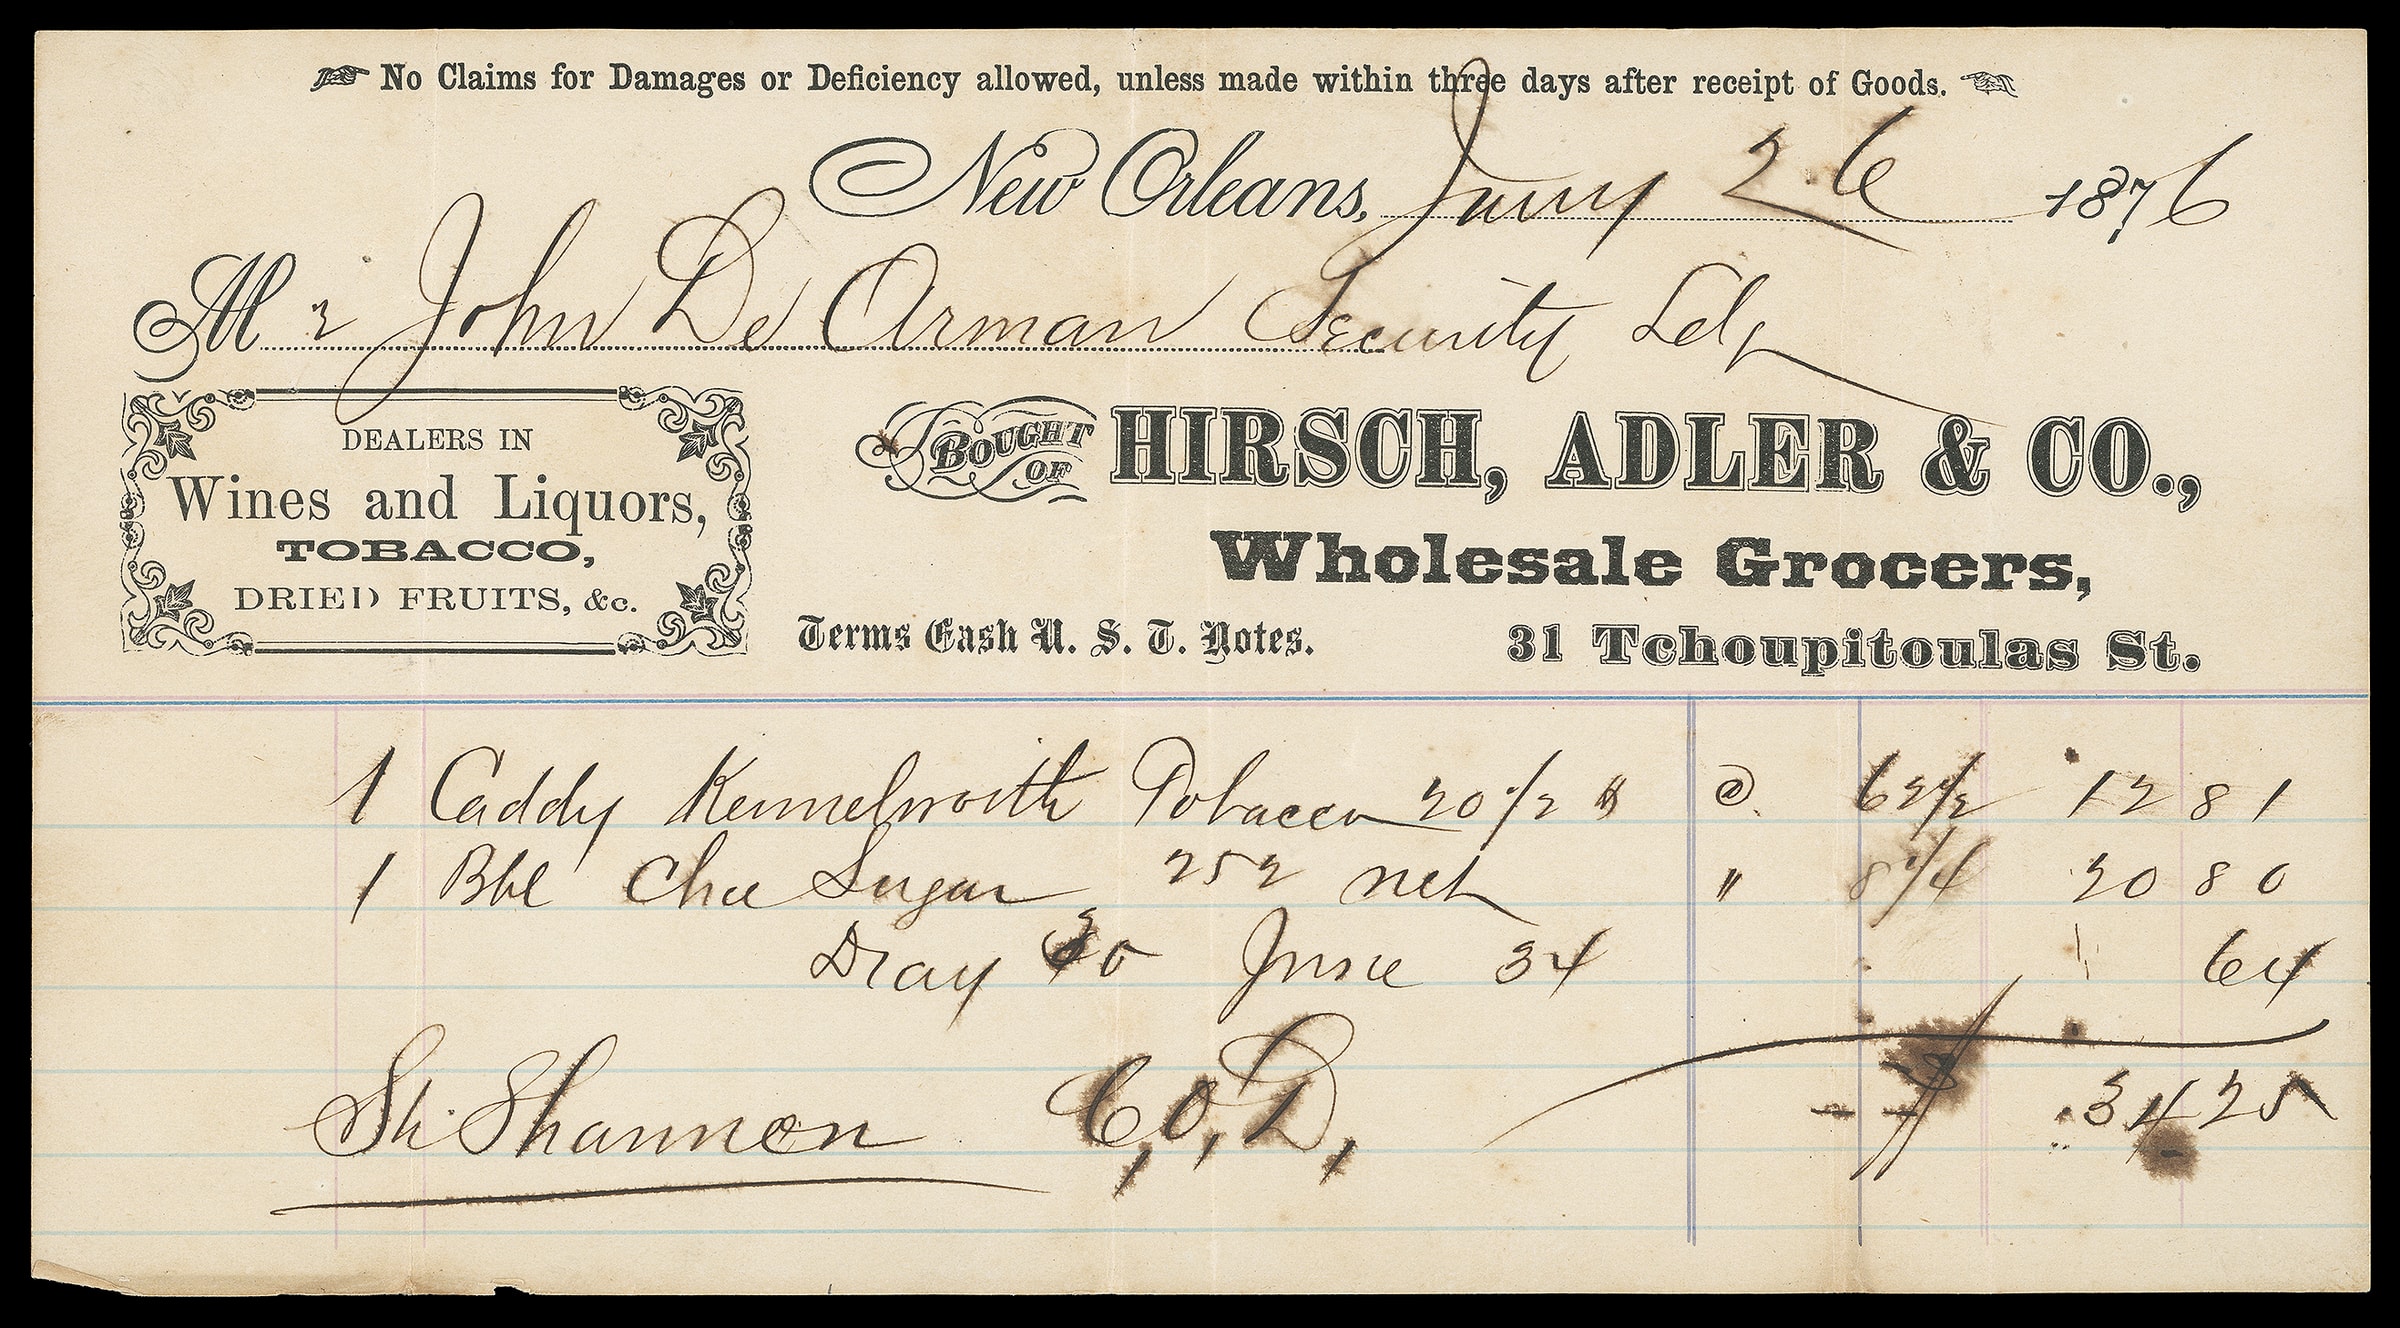 No Claims for Damages or Deficiency allowed, unless made within three days after receipt of Goods.
New Orleans, Jany 26 1876
Mr John De Arman Security Ldg
DEALERS IN
Wines and Liquors,
TOBACCO,
DRIED FRUITS, &c.
BOUGHT OF HIRSCH, ADLER & CO.,
Wholesale Grocers,
Terms Cash U. S. T. Notes.
31 Tchoupitoulas St.
1 Caddy Kennelworth Tobacco 20 1/2 @ 62 1/2 12 81
1 Bbl Che Sugar 252 net " 8 1/4 20 80
Dray 30 Insce 34 64
Str Shannon C.O.D. $ 34 25